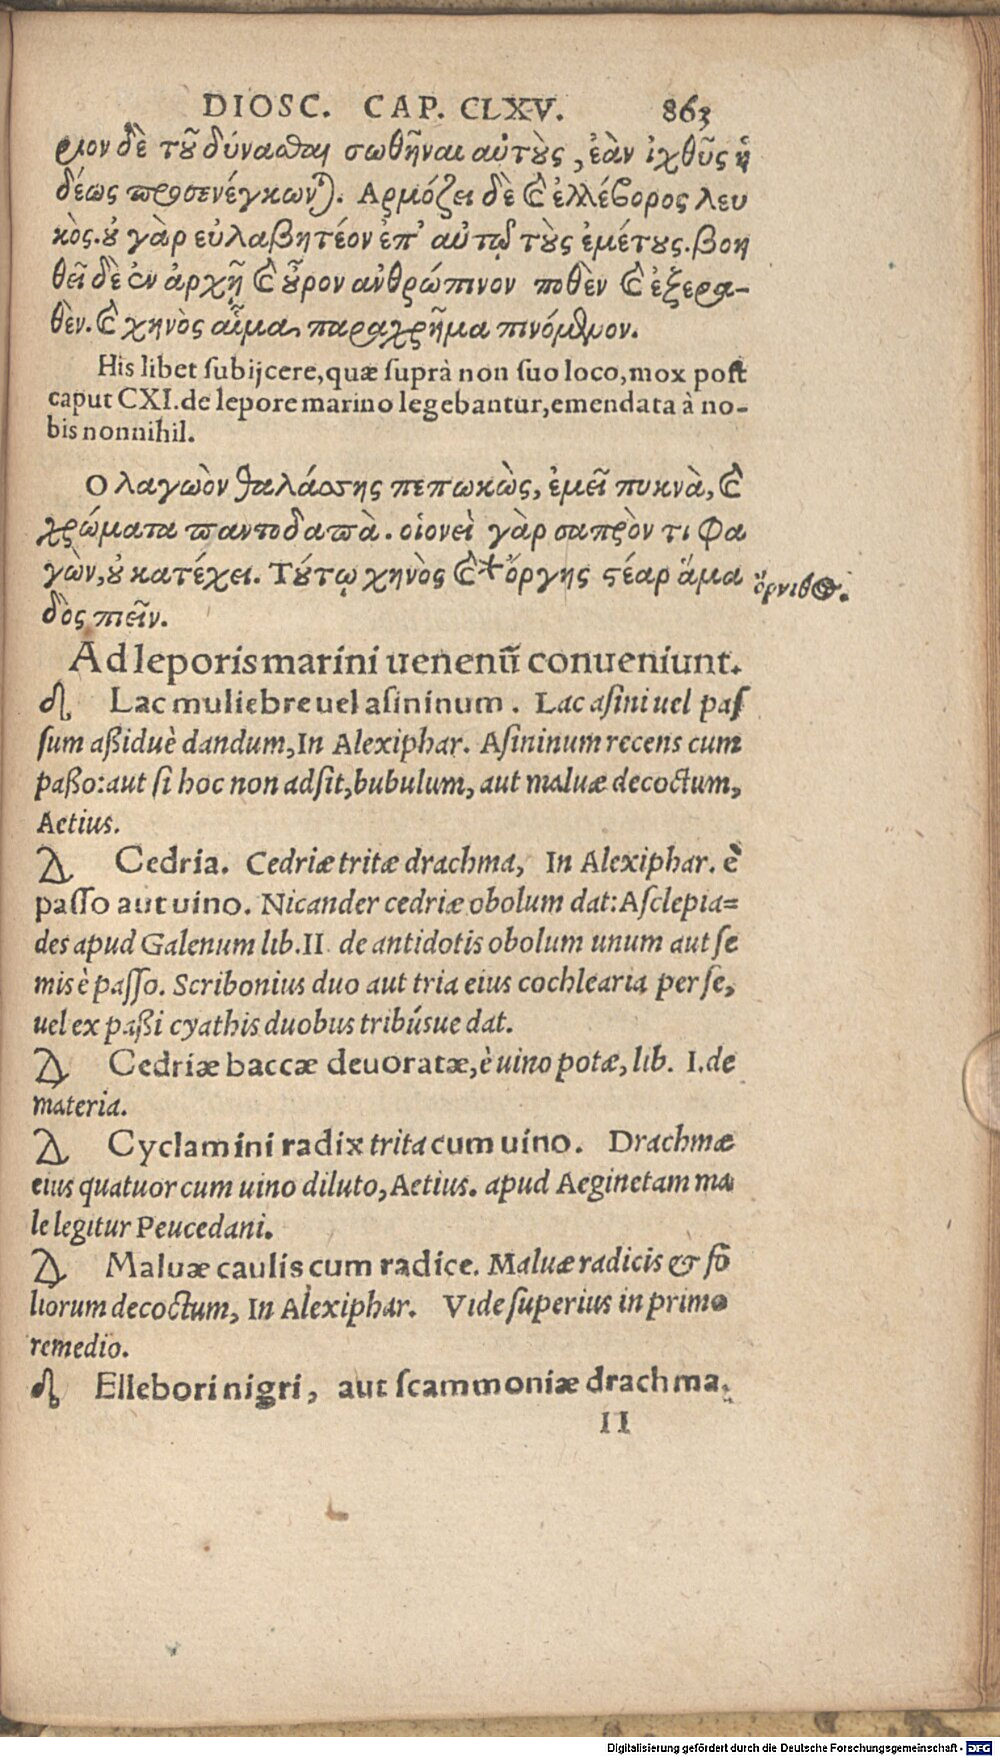 DIOSC. CAP. CLXV. 863
ριον δὲ τοῦ δύνασθαι σωθῆναι αὐτοὺς, ἐὰν ἰχθῦς ἡ
δέως προσενέγκωνται. Αρμόζει δὲ καὶ ἐλλέβορος λευ
κὸς. οὐ γὰρ εὐλαβητέον ἐπ' αὐτῷ τοὺς ἐμέτους. βοη
θεῖ δὲ ἐν ἀρχῇ καὶ οὖρον ἀνθρώπινον ποθὲν καὶ ἐξερα-
θὲν. καὶ χηνὸς αἷμα παραχρῆμα πινόμενον.
His libet subijcere, quæ suprà non suo loco, mox post
caput CXI. de lepore marino legebantur, emendata à no-
bis nonnihil.
Ο λαγωὸν θαλάσσης πεπωκὼς, ἐμεῖ πυκνὰ, καὶ
χρώματα παντοδαπὰ. οἱονεὶ γὰρ σαπρὸν τι φα
γὼν, οὐ κατέχει. Τούτῳ χηνὸς καὶ * ὄργης στέαρ ἅμα
ὄρνιθος.
δὸς πιεῖν.
Ad leporis marini uenenũ conueniunt.
Lac muliebre uel asininum. Lac asini uel pas
sum aßiduè dandum, In Alexiphar. Asininum recens cum
paßo: aut si hoc non adsit, bubulum, aut maluæ decoctum,
Aetius.
Δ Cedria. Cedriæ tritæ drachma, In Alexiphar. è
passo aut uino. Nicander cedriæ obolum dat: Asclepia=
des apud Galenum lib. II de antidotis obolum unum aut se
mis è passo. Scribonius duo aut tria eius cochlearia per se,
uel ex paßi cyathis duobus tribúsue dat.
Δ Cedriæ baccæ deuoratæ, è uino potæ, lib. I. de
materia.
Δ Cyclamini radix trita cum uino. Drachmæ
eius quatuor cum uino diluto, Aetius. apud Aeginetam ma
le legitur Peucedani.
Δ Maluæ caulis cum radice. Maluæ radicis & fo
liorum decoctum, In Alexiphar. Vide superius in primo
remedio.
Ellebori nigri, aut scammoniæ drachma.
II
Digitalisierung gefördert durch die Deutsche Forschungsgemeinschaft - DFG